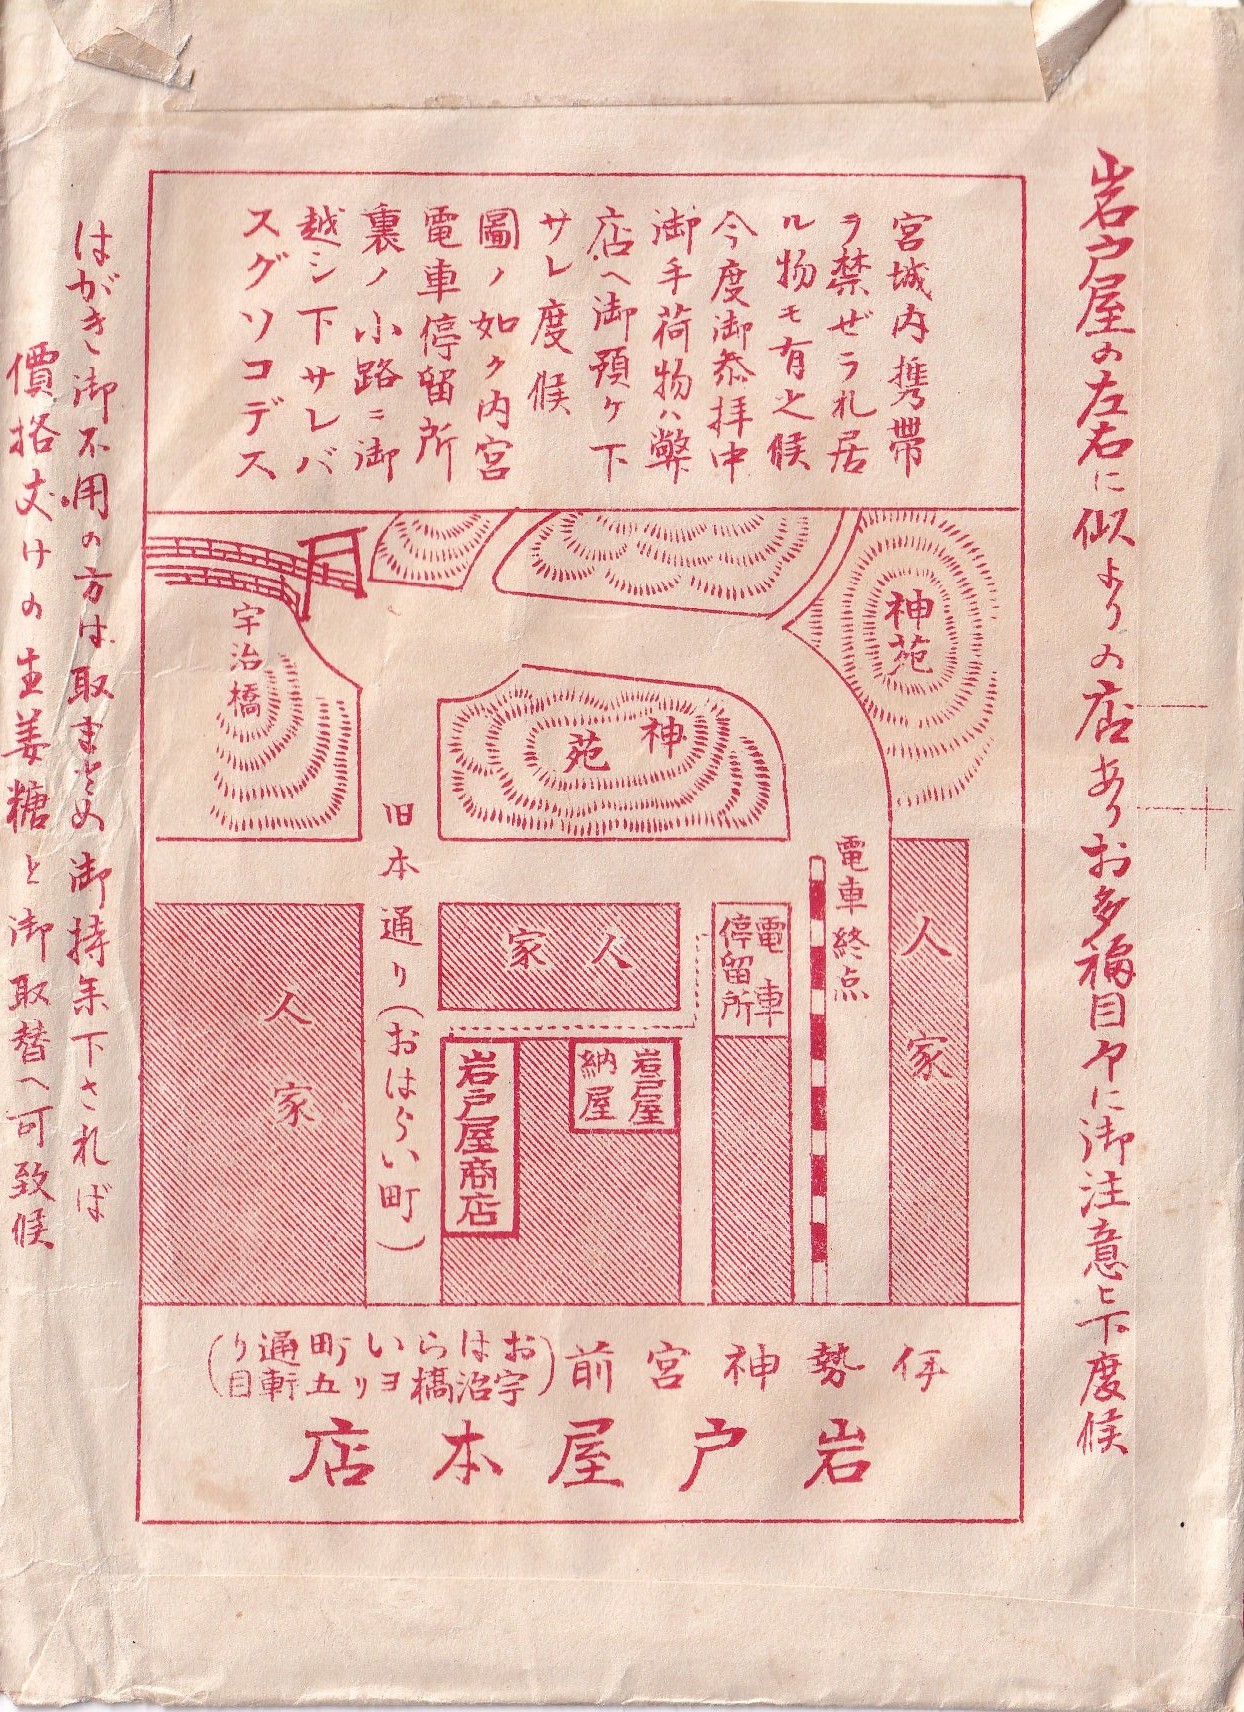 岩戸屋の左右に似よりの店ありお多福目印に御注意被下度候
宮城内携帯
ヲ禁ぜラれ居
ル物モ有之候
今度御参拝中
御手荷物ハ弊
店ヘ御預ケ下
サレ度候
圖ノ如ク内宮
電車停留所
裏ノ小路ニ御
越シ下サレバ
スグソコデス
はがき御不用の方は取まとめ御持参下されば
價格丈けの生姜糖と御取替へ可致候
神苑
神苑
宇治橋
旧本通り(おはらい町)
電車終点
人家
電車
停留所
人家
人家
岩戸屋
納屋
岩戸屋商店
伊勢神宮前
(おはらい町通り
宇治橋ヨリ五軒目)
岩戸屋本店